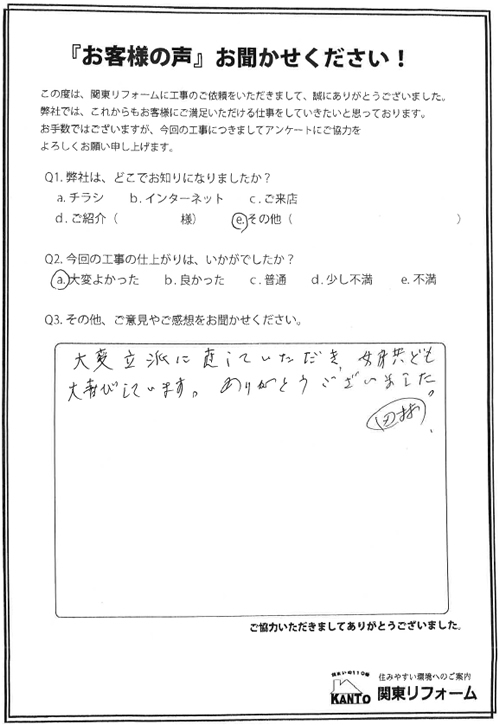 『お客様の声』お聞かせください！
この度は、関東リフォームに工事のご依頼をいただきまして、誠にありがとうございました。
弊社では、これからもお客様にご満足いただける仕事をしていきたいと思っております。
お手数ではございますが、今回の工事につきましてアンケートにご協力を
よろしくお願い申し上げます。
Q1. 弊社は、どこでお知りになりましたか？
a. チラシ b. インターネット c. ご来店
d. ご紹介（ 様） e. その他（ ）
Q2. 今回の工事の仕上がりは、いかがでしたか？
a. 大変よかった b. 良かった c. 普通 d. 少し不満 e. 不満
Q3. その他、ご意見やご感想をお聞かせください。
大変立派に直していただき、共ども
大喜びしています。ありがとうございました。
ご協力いただきましてありがとうございました。
住みやすい環境へのご案内
KANTO 関東リフォーム